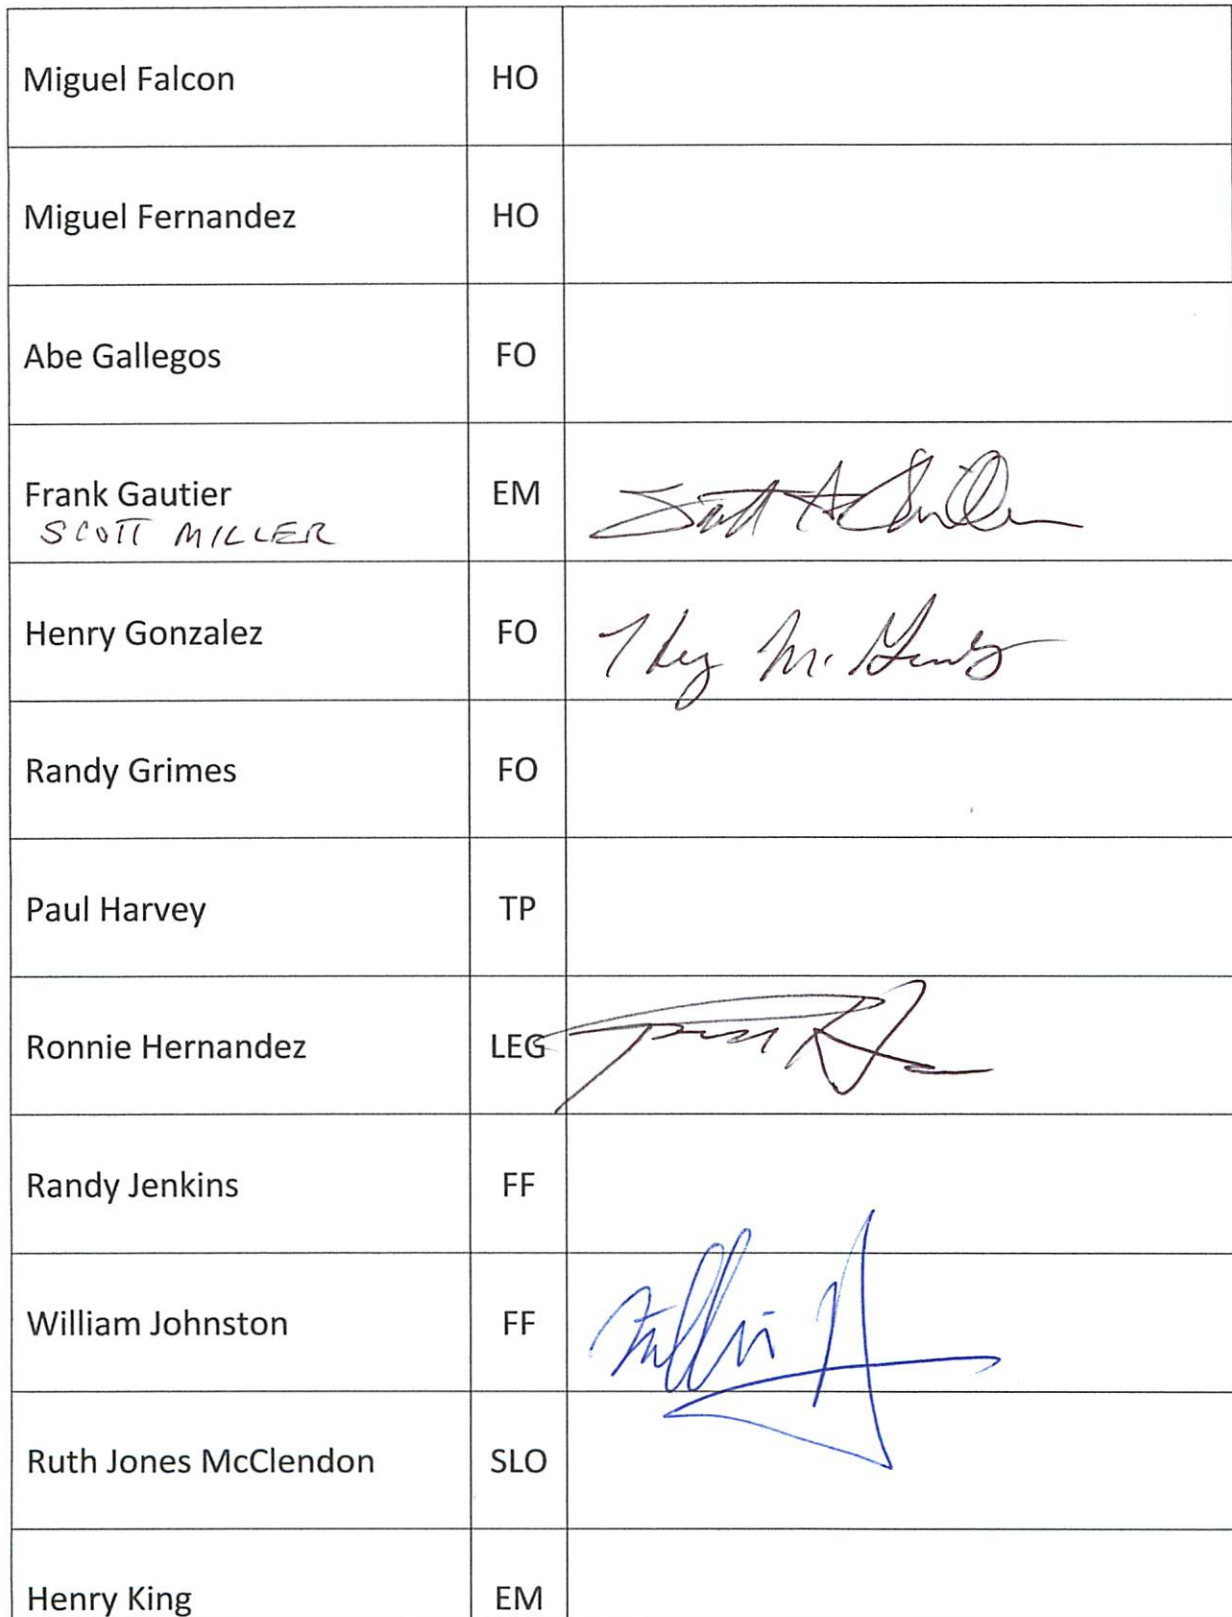 Miguel Falcon HO
Miguel Fernandez HO
Abe Gallegos FO
Frank Gautier EM
SCOTT MILLER
Henry Gonzalez FO
Randy Grimes FO
Paul Harvey TP
Ronnie Hernandez LEG
Randy Jenkins FF
William Johnston FF
Ruth Jones McClendon SLO
Henry King EM